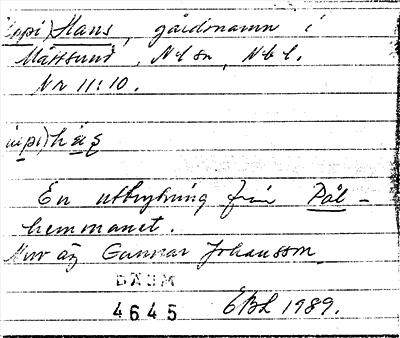 ippi)Hans, gårdsnamn i
Måttsund, Nlsn, Nbl.
Nr 11:10.
ipi)hàs
En utbrytning från Pål-
hemmanet.
Nuv äg Gunnar Johansson
DAUM
4645 EBL 1989.